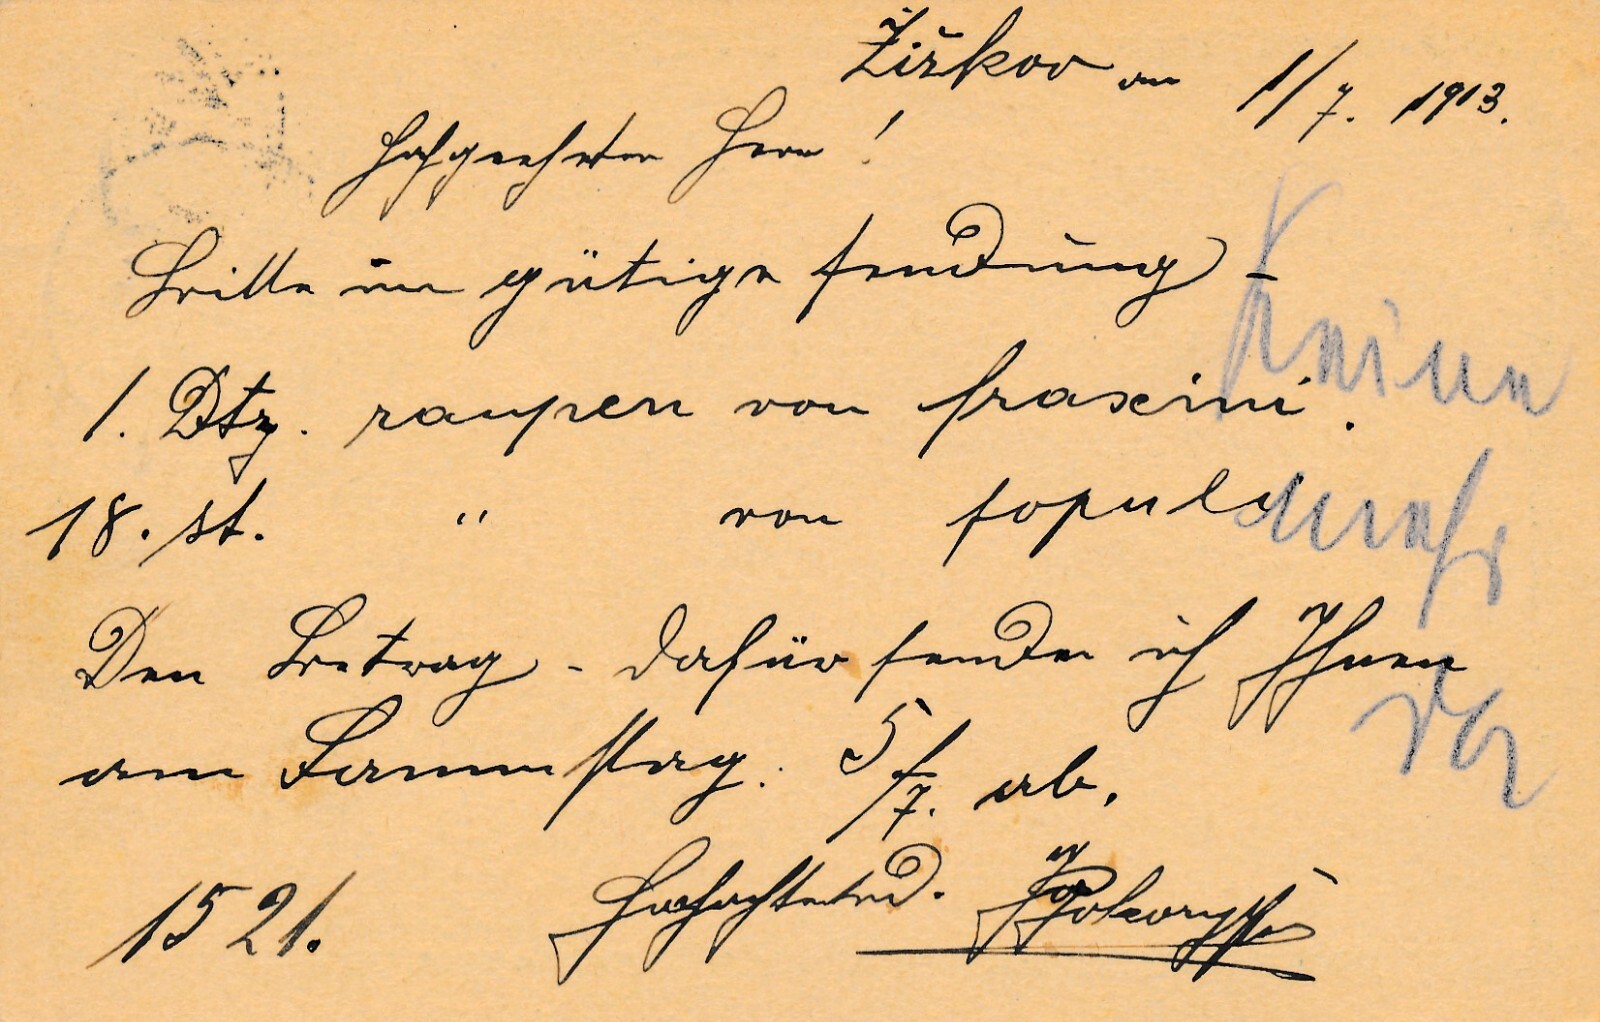 Žižkov am 1/7. 1913.
Hochgeehrter Herr!
Bitte um gütige sendung
1. Dtz. raupen von fraxini.
18. st. " von populi
Den Betrag – dafür sende ich Ihnen
am Sammstag. 5/7. ab.
Hochachtend.
1521.
Keine
mehr